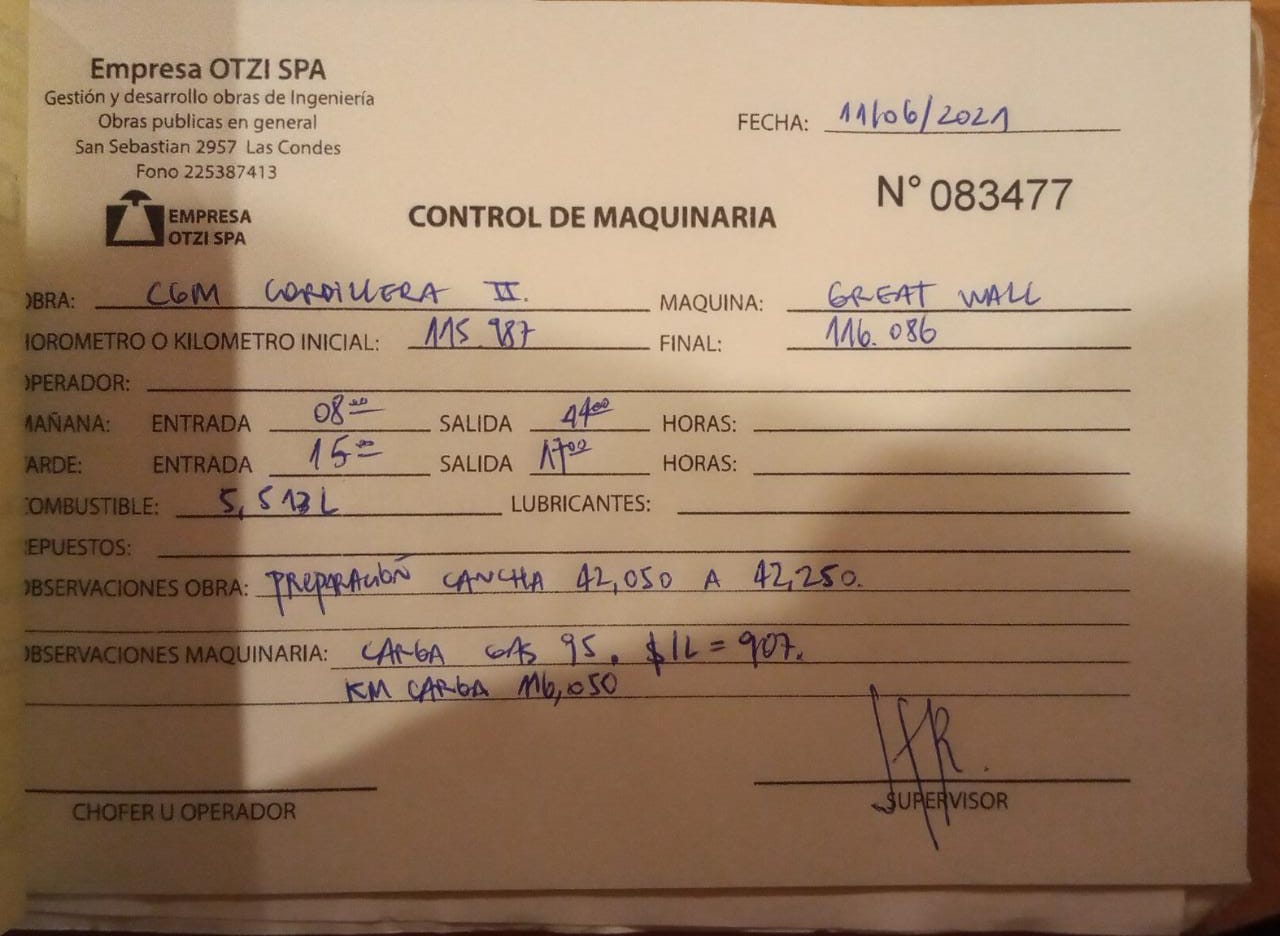 Empresa OTZI SPA
Gestión y desarrollo obras de Ingeniería
Obras publicas en general
San Sebastian 2957 Las Condes
Fono 225387413
FECHA: 11/06/2021
N° 083477
EMPRESA
OTZI SPA
CONTROL DE MAQUINARIA
OBRA: CGM CORDILLERA II. MAQUINA: GREAT WALL
HOROMETRO O KILOMETRO INICIAL: 115.987 FINAL: 116.086
OPERADOR:
MAÑANA: ENTRADA 08:00 SALIDA 14:00 HORAS:
TARDE: ENTRADA 15:00 SALIDA 17:00 HORAS:
COMBUSTIBLE: 5,513 L LUBRICANTES:
REPUESTOS:
OBSERVACIONES OBRA: PREPARACIÓN CANCHA 42,050 A 42,250.
OBSERVACIONES MAQUINARIA: CARGA GAS 95. $/L = 907.
KM CARGA 116,050
CHOFER U OPERADOR
SUPERVISOR